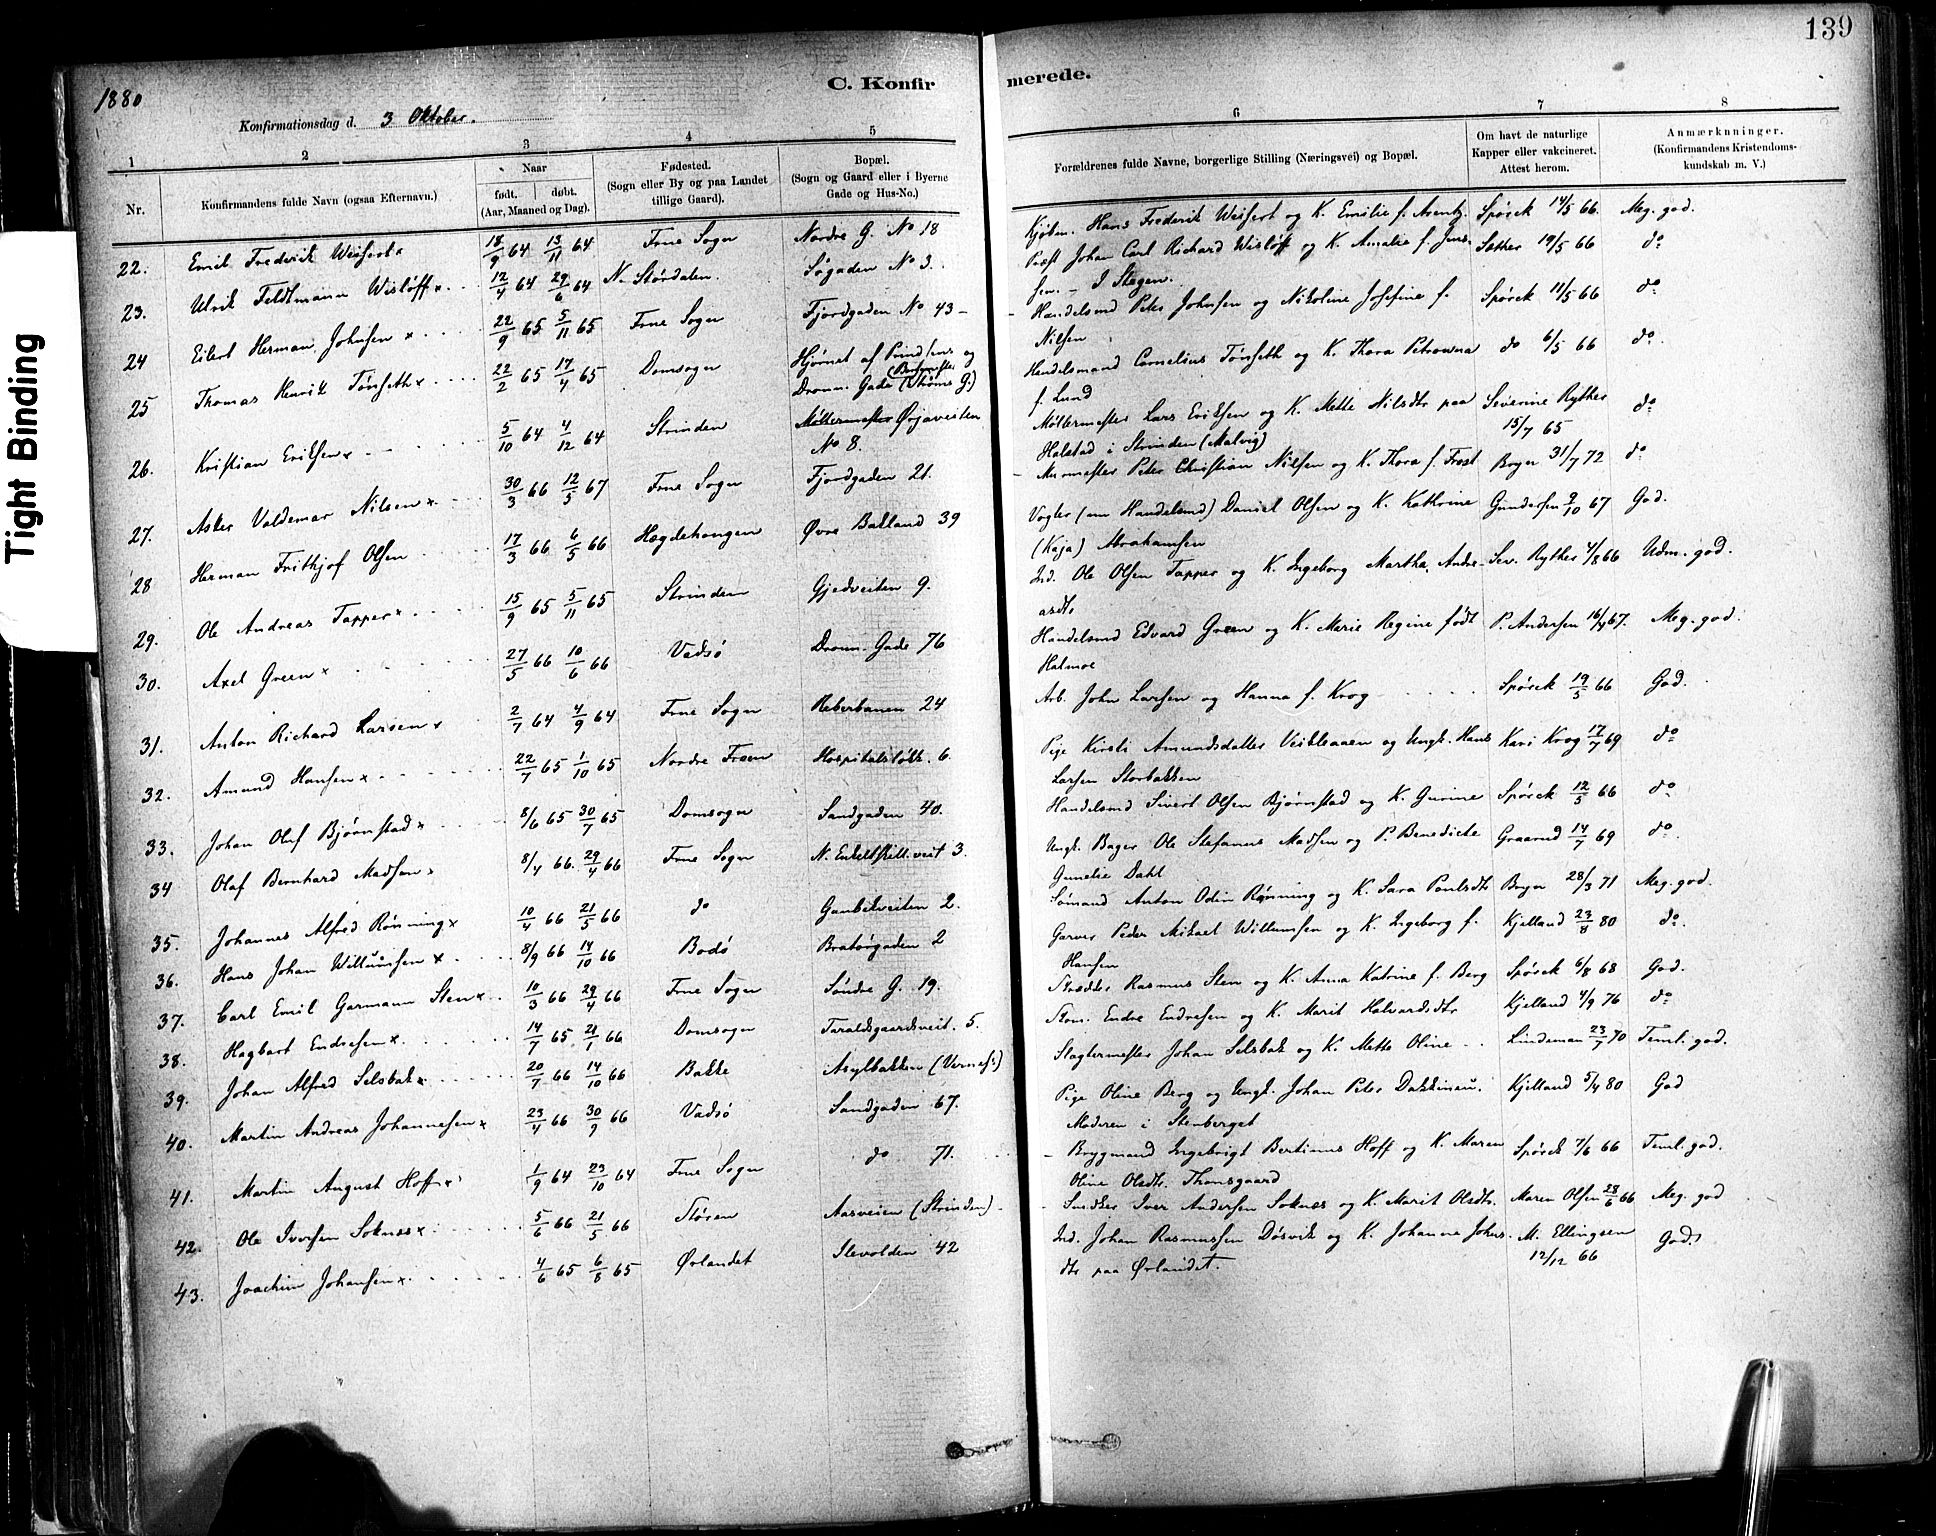 139
1880
C. Konfirmerede.
Konfirmationsdag d. 3 Oktober.
1 2 3 4 5 6 7 8
Nr.
Konfirmandens fulde Navn (ogsaa Efternavn.)
Naar
født. døbt.
(Aar, Maaned og Dag).
Fødested.
(Sogn eller By og paa Landet
tillige Gaard).
Bopæl.
(Sogn og Gaard eller i Byerne
Gade og Hus-No.)
Forældrenes fulde Navne, borgerlige Stilling (Næringsvei) og Bopæl.
Om havt de naturlige
Kapper eller vakcineret.
Attest herom.
Anmærknninger.
(Konfirmandens Kristendoms-
kundskab m. V.)
22. Emil Frederik Weisert x 18/9 64 13/11 64 Frue Sogn Nordre G. No 18 Kjøbm. Hans Frederik Weisert og K. Emilie f. Arentz. Spörck 14/5 66. Meg. god.
23. Ulrik Feldtmann Wisløff x 12/4 64 29/6 64 N. Stördalen. Søgaden No 3. Præst Johan Carl Richard Wisløff og K. Amalie f. Jens- Sæther 19/5 66 do
sen. - I Stegen.
24 Eilert Herman Johnsen x 22/9 65 5/11 65 Frue Sogn Fjordgaden No 43 - Handelsmd Peter Johnsen og Nikoline Josefine f. Spörck 11/5 66 do
Nilsen
25 Thomas Henrik Tönseth x 22/2 65 17/4 65 Domsogn Hjørnet af Prindsens og Handelsmand Cornelius Tönseth og K. Thora Petrowna do 6/5 66 do
Dronn. Gade f. Lund
26. Kristian Eriksen x 5/10 64 4/12 64 Strinden Møllermester Ørjaveiten Møllermester Lars Eriksen og K. Mette Nilsdtr paa Severine Ryther do
No 8. Halstad i Strinden (Malvig) 15/7 65
27. Asker Valdemar Nilsen x 30/3 66 12/5 67 Frue Sogn Fjordgaden 21. - Murmester Peter Christian Nilsen og K. Thora f. Frost Boyer 31/7 72 do
28 Herman Frithjof Olsen 17/3 66 6/5 66 Hægdehaugen Øvre Bakland 39 Vogter (nu Handelsmd) Daniel Olsen og K. Kathrine Gundersen 9/10 67 God.
(Kaja) Abrahamsen
29. Ole Andreas Tapper x 15/9 65 5/11 65 Strinden Gjedveiten 9. Ind. Ole Olsen Tapper og K. Ingeborg Martha Andre- Sev. Ryther 4/8 66 Udm. god.
asdtr
30. Axel Green x 27/5 66 10/6 66 Vadsö Dronn. Gade 76 Handelsmd Edvard Green og K. Marie Regine født P. Andersen 67. Meg. god.
Halmoe
31. Anton Richard Larsen x 2/7 64 4/9 64 Frue Sogn Reberbanen 24 Arb. John Larsen og Hanna f. Krog Spörck 19/5 66 God.
32. Amund Hansen x 22/7 65 1/10 65 Nordre Froen Hospitalsløkk. 6. Pige Kirsti Amundsdatter Veikleaaen og Ungk. Hans Kari Krog 17/7 69 do
Larsen Storbakken
33. Johan Oluf Bjørnstad x 8/6 65 30/7 65 Domsogn Sandgaden 40. Handelsmd Sivert Olsen Bjørnstad og K. Gurine Spörck 12/5 66 do
34 Olaf Bernhard Madsen 8/4 66 29/4 66 Frue Sogn N. Enkeltskill.veit 3. Ungk. Bager Ole Stefanus Madsen og P. Benedicte Graarud 14/7 69 do
Gunelie Dahl
35. Johannes Alfred Rönning x 10/4 66 21/5 66 do Gaubekveiten 2. Sömand Anton Odin Rönning og K. Sara Paulsdtr Boyer 28/3 71 Meg. god.
36. Hans Johan Willumsen x 8/9 66 14/10 66 Bodö Bratörgaden 2 Garver Peder Mikael Willumsen og K. Ingeborg f. Kjelland 23/8 80 do.
Hansen
37. Carl Emil Garmann Sten x 10/3 66 29/4 66 Frue Sogn Söndre G. 19. Skrædder Rasmus Sten og K. Anna Katrine f. Berg Spörck 6/8 68 God.
38. Hagbart Endresen x 14/7 65 21/1 66 Domsogn Taraldsgaardsveit. 5. Skom. Endre Endresen og K. Marit Halvardsdtr Kjelland 4/9 76 do
39. Johan Alfred Selsbak x 20/7 66 14/10 66 Bakke Asylbakken Slagtermester Johan Selsbak og K. Mette Oline Lindeman 23/7 70 Teml. god.
40. Martin Andreas Johannesen x 23/4 66 30/9 66 Vadsö Sandgaden 67. Pige Oline Berg og Ungk. Johan Peter Kjelland 5/4 80 God
Moderen i Stenberget
41. Martin August Hoff x 1/9 64 23/10 64 Frue Sogn do 71. - Brygmand Ingebrigt Bertinus Hoff og K. Maren Spörck 7/6 66 Teml. god.
Oline Olsdtr. Thonsgaard
42. Ole Iversen Soknæs x 5/6 66 21/5 66 Stören Aasveien (Strinden) - Snedker Iver Andersen Soknæs og K. Marit Olsdtr. Maren Olsen 28/6 66 Meg. god
43. Joachim Johansen x 4/6 65 6/8 65 Ørlandet Ilevolden 42 Ind. Johan Rasmussen Døsvik og K. Johanna Johns- M. Ellingsen God.
dtr paa Ørlandet. 12/12 66
Tight Binding